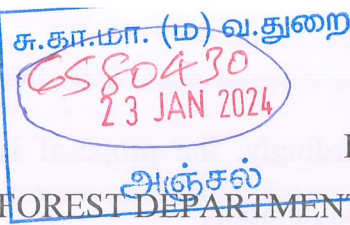 சு.கா.மா. (ம) வ.துறை
6580430
23 JAN 2024
அஞ்சல்
FOREST DEPARTMENT